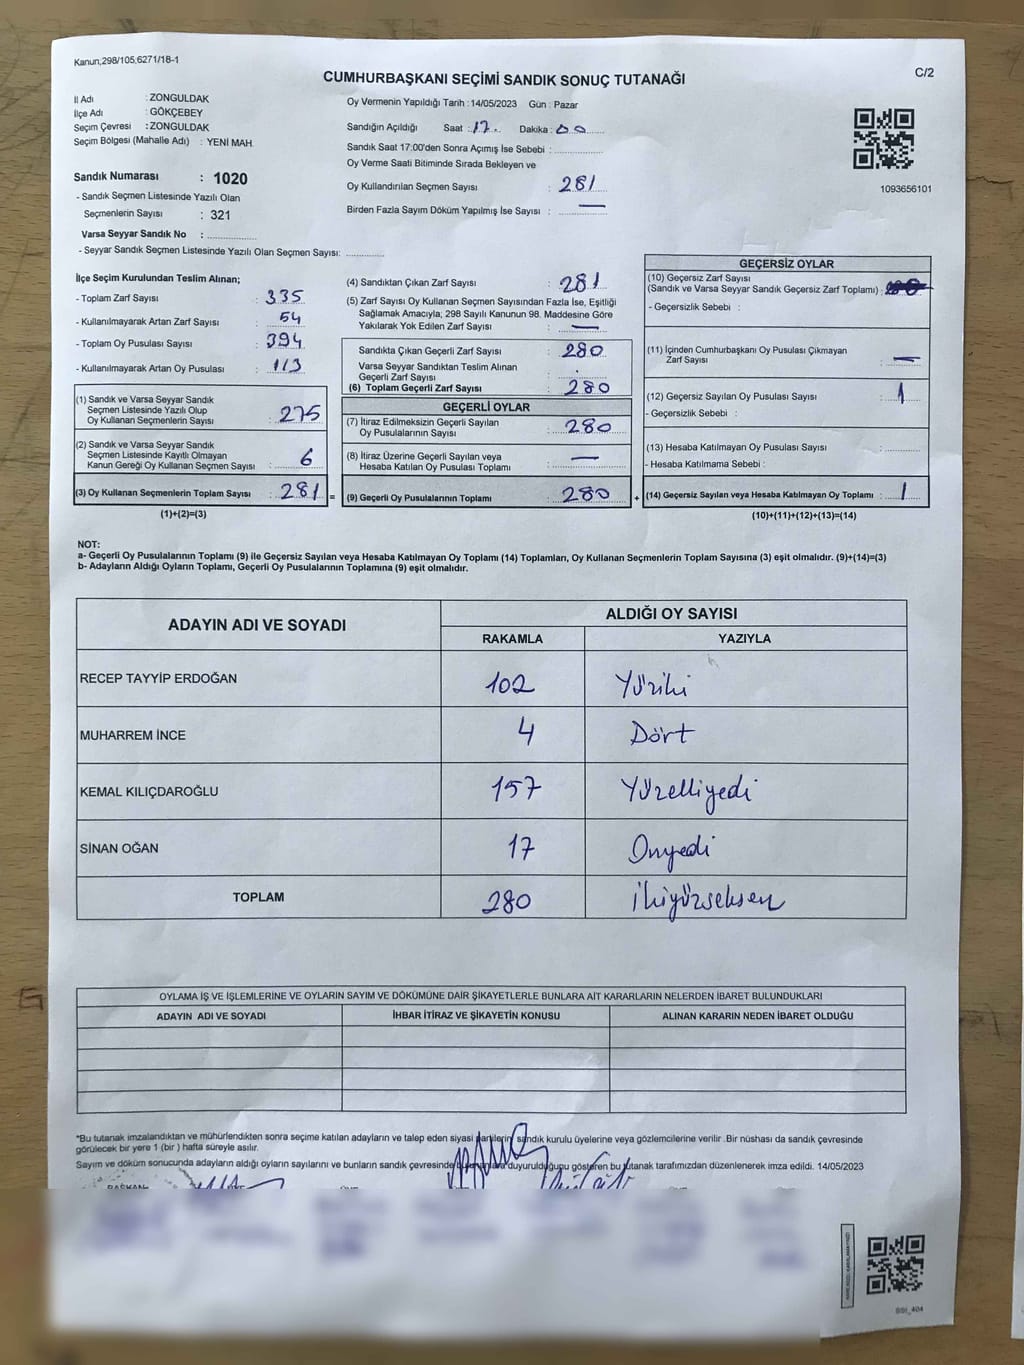 Kanun;298/105;6271/18-1
C/2
CUMHURBAŞKANI SEÇİMİ SANDIK SONUÇ TUTANAĞI
İl Adı : ZONGULDAK
İlçe Adı : GÖKÇEBEY
Seçim Çevresi : ZONGULDAK
Seçim Bölgesi (Mahalle Adı) : YENİ MAH.
Sandık Numarası : 1020
- Sandık Seçmen Listesinde Yazılı Olan
Seçmenlerin Sayısı : 321
Varsa Seyyar Sandık No :
- Seyyar Sandık Seçmen Listesinde Yazılı Olan Seçmen Sayısı:
Oy Vermenin Yapıldığı Tarih : 14/05/2023 Gün : Pazar
Sandığın Açıldığı Saat : 17. Dakika : 00
Sandık Saat 17:00'den Sonra Açımış İse Sebebi :
Oy Verme Saati Bitiminde Sırada Bekleyen ve
Oy Kullandırılan Seçmen Sayısı : 281
Birden Fazla Sayım Döküm Yapılmış İse Sayısı : —
1093656101
İlçe Seçim Kurulundan Teslim Alınan;
- Toplam Zarf Sayısı : 335
- Kullanılmayarak Artan Zarf Sayısı : 54
- Toplam Oy Pusulası Sayısı : 394
- Kullanılmayarak Artan Oy Pusulası : 113
(1) Sandık ve Varsa Seyyar Sandık
Seçmen Listesinde Yazılı Olup
Oy Kullanan Seçmenlerin Sayısı : 275
(2) Sandık ve Varsa Seyyar Sandık
Seçmen Listesinde Kayıtlı Olmayan
Kanun Gereği Oy Kullanan Seçmen Sayısı : 6
(3) Oy Kullanan Seçmenlerin Toplam Sayısı : 281 =
(1)+(2)=(3)
(4) Sandıktan Çıkan Zarf Sayısı : 281
(5) Zarf Sayısı Oy Kullanan Seçmen Sayısından Fazla İse, Eşitliği
Sağlamak Amacıyla; 298 Sayılı Kanunun 98. Maddesine Göre
Yakılarak Yok Edilen Zarf Sayısı : —
Sandıkta Çıkan Geçerli Zarf Sayısı : 280
Varsa Seyyar Sandıktan Teslim Alınan
Geçerli Zarf Sayısı :
(6) Toplam Geçerli Zarf Sayısı : 280
GEÇERLİ OYLAR
(7) İtiraz Edilmeksizin Geçerli Sayılan
Oy Pusulalarının Sayısı : 280
(8) İtiraz Üzerine Geçerli Sayılan veya
Hesaba Katılan Oy Pusulası Toplamı : —
(9) Geçerli Oy Pusulalarının Toplamı : 280 +
GEÇERSİZ OYLAR
(10) Geçersiz Zarf Sayısı
(Sandık ve Varsa Seyyar Sandık Geçersiz Zarf Toplamı) :
- Geçersizlik Sebebi :
(11) İçinden Cumhurbaşkanı Oy Pusulası Çıkmayan
Zarf Sayısı : —
(12) Geçersiz Sayılan Oy Pusulası Sayısı : 1
- Geçersizlik Sebebi :
(13) Hesaba Katılmayan Oy Pusulası Sayısı :
- Hesaba Katılmama Sebebi :
(14) Geçersiz Sayılan veya Hesaba Katılmayan Oy Toplamı : 1
(10)+(11)+(12)+(13)=(14)
NOT:
a- Geçerli Oy Pusulalarının Toplamı (9) ile Geçersiz Sayılan veya Hesaba Katılmayan Oy Toplamı (14) Toplamları, Oy Kullanan Seçmenlerin Toplam Sayısına (3) eşit olmalıdır. (9)+(14)=(3)
b- Adayların Aldığı Oyların Toplamı, Geçerli Oy Pusulalarının Toplamına (9) eşit olmalıdır.
ADAYIN ADI VE SOYADI
ALDIĞI OY SAYISI
RAKAMLA YAZIYLA
RECEP TAYYİP ERDOĞAN 102 Yüziki
MUHARREM İNCE 4 Dört
KEMAL KILIÇDAROĞLU 157 Yüzelliyedi
SİNAN OĞAN 17 Onyedi
TOPLAM 280 İkiyüzseksen
OYLAMA İŞ VE İŞLEMLERİNE VE OYLARIN SAYIM VE DÖKÜMÜNE DAİR ŞİKAYETLERLE BUNLARA AİT KARARLARIN NELERDEN İBARET BULUNDUKLARI
ADAYIN ADI VE SOYADI İHBAR İTİRAZ VE ŞİKAYETİN KONUSU ALINAN KARARIN NEDEN İBARET OLDUĞU
*Bu tutanak imzalandıktan ve mühürlendikten sonra seçime katılan adayların ve talep eden siyasi partilerin sandık kurulu üyelerine veya gözlemcilerine verilir .Bir nüshası da sandık çevresinde
görülecek bir yere 1 (bir ) hafta süreyle asılır.
Sayım ve döküm sonucunda adayların aldığı oyların sayılarını ve bunların sandık çevresinde duyurulduğunu gösteren bu tutanak tarafımızdan düzenlenerek imza edildi. 14/05/2023
BAŞKAN
SSI_404